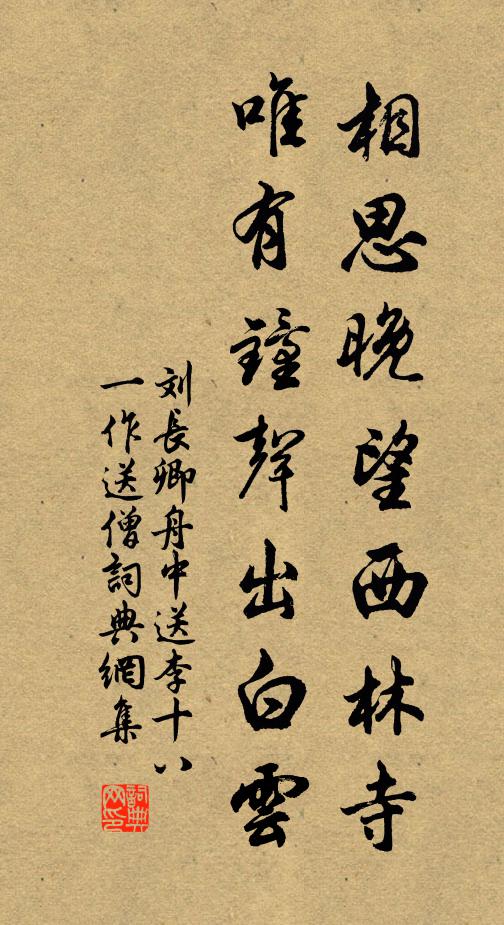 相思晚望西林寺
唯有鐘聲出白雲
刘長卿舟中送李十八
一作送僧詞典網集
詞典網印